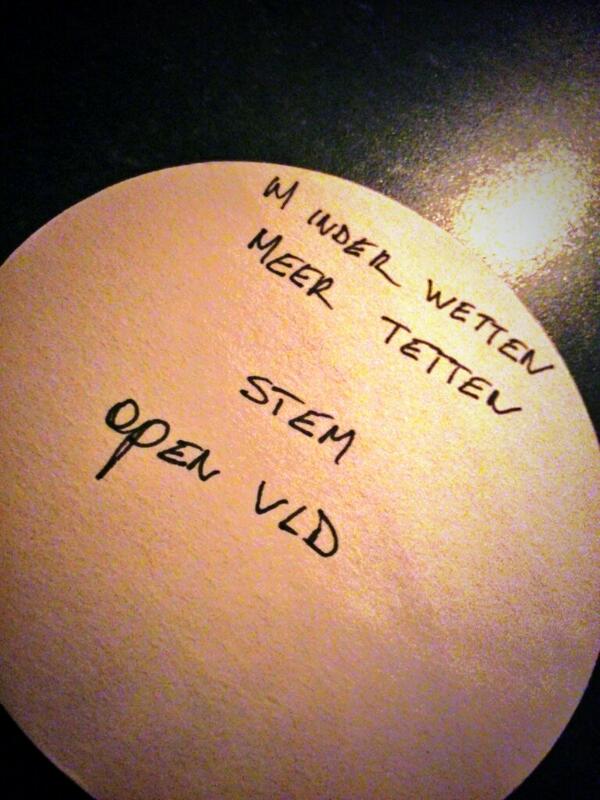 MINDER WETTEN
MEER TETTEN
STEM
OPEN VLD